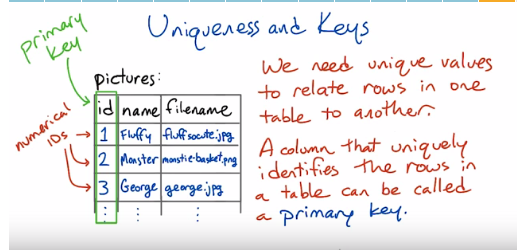 Uniqueness and Keys
primary
key
pictures:
id name filename
1 Fluffy fluffsocute.jpg
2 Monster monstie-basket.png
3 George george.jpg
⋮ ⋮ ⋮
numerical
IDs
We need unique values
to relate rows in one
table to another.
A column that uniquely
identifies the rows in
a table can be called
a primary key.